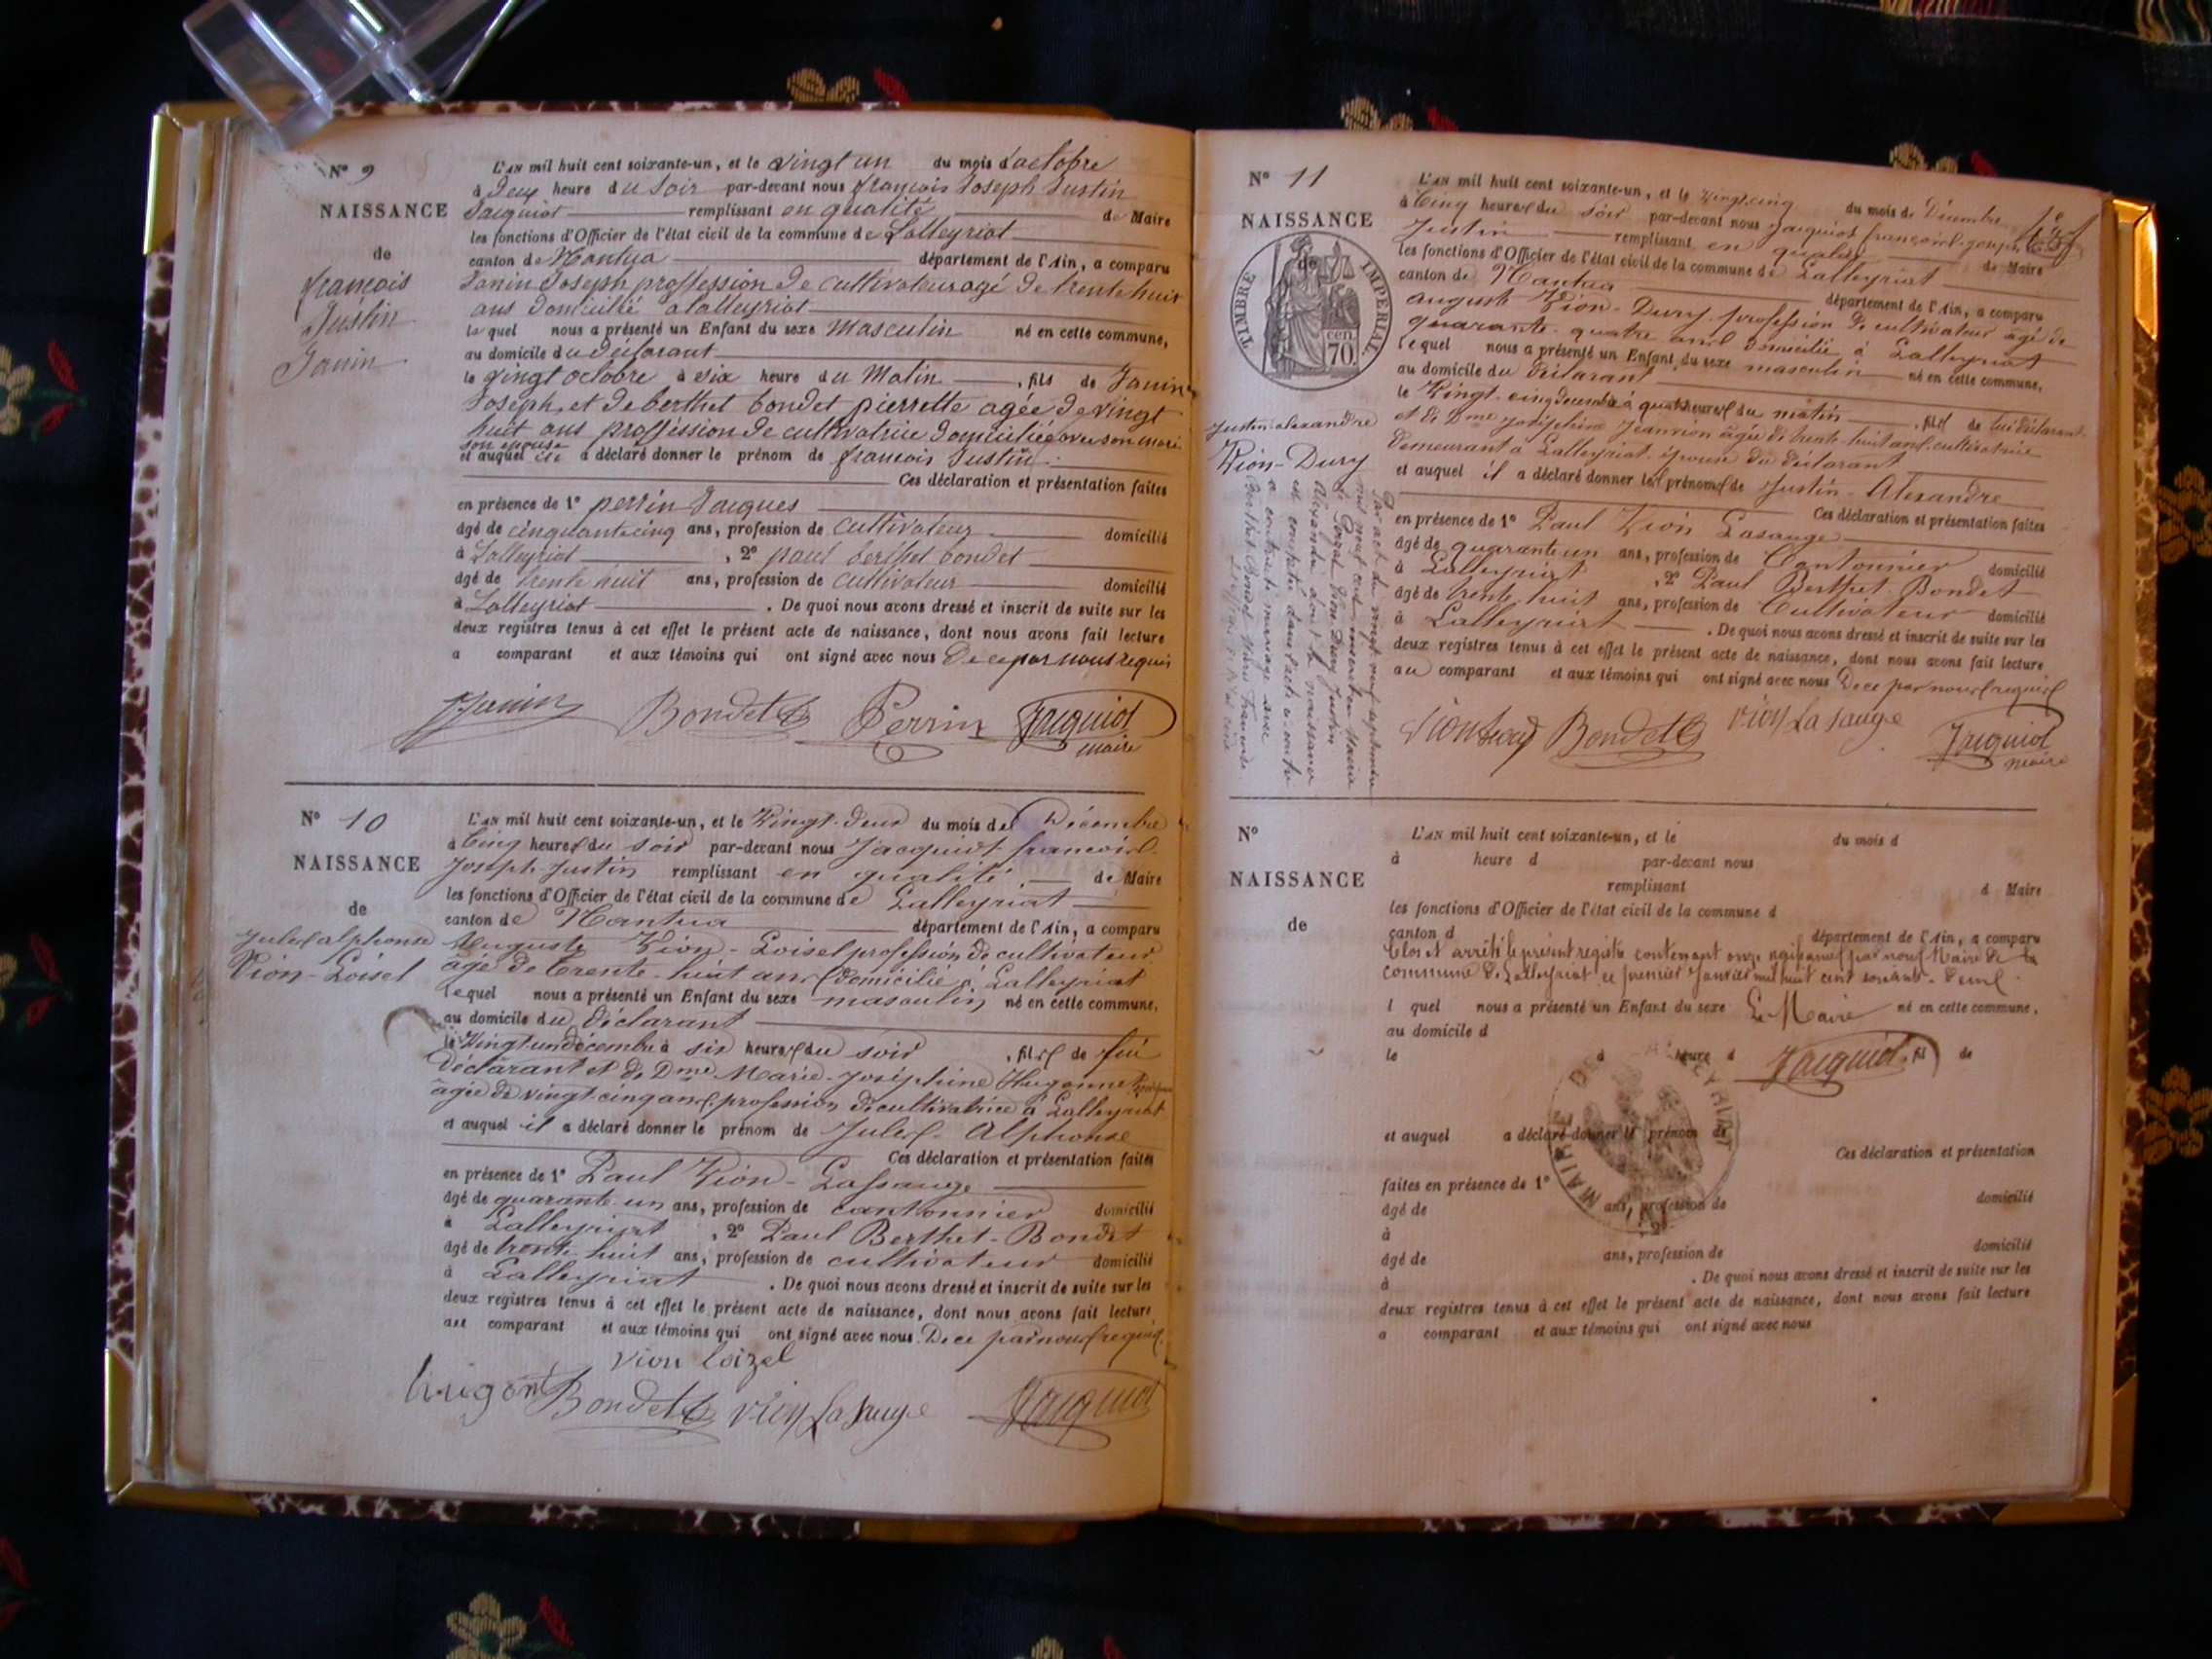 Nº 9
NAISSANCE
de
françois
Justin
Janin
L'AN mil huit cent soixante-un, et le vingt un du mois d'octobre
à deux heure du Soir par-devant nous françois Joseph Justin
Jacquiot remplissant en qualité de Maire
les fonctions d'Officier de l'état civil de la commune de Lalleyriat
canton de Nantua département de l'Ain, a comparu
Janin Joseph proffession de cultivateur agé de trente huit
ans domicilié a lalleyriat
le quel nous a présenté un Enfant du sexe Masculin né en cette commune,
au domicile du déclarant
le vingt octobre à six heure du Matin , fils de Janin
Joseph, et de berthet bondet pierrette agée de vingt
huit ans proffession de cultivatrice domiciliée avec son mari
son épouse
et auquel a déclaré donner le prénom de françois Justin
Ces déclaration et présentation faites
en présence de 1º perrin Jacques
âgé de cinquante cinq ans, profession de cultivateur domicilié
à Lalleyriat , 2º paul berthet bondet
âgé de trente huit ans, profession de cultivateur domicilié
à Lalleyriat . De quoi nous avons dressé et inscrit de suite sur les
deux registres tenus à cet effet le présent acte de naissance, dont nous avons fait lecture
a comparant et aux témoins qui ont signé avec nous De ce par nous requis
Janin Bondet Perrin Jacquiot
maire
Nº 10
NAISSANCE
de
Jules alphonse
Vion-Loisel
L'AN mil huit cent soixante-un, et le Vingt-deux du mois de Décembre
à Cinq heures du soir par-devant nous Jacquiot françois
Joseph Justin remplissant en qualité de Maire
les fonctions d'Officier de l'état civil de la commune de Lalleyriat
canton de Nantua département de l'Ain, a comparu
Auguste Vion-Loisel profession de cultivateur
âgé de trente-huit ans domicilié à Lalleyriat
lequel nous a présenté un Enfant du sexe masculin né en cette commune,
au domicile du déclarant
le Vingt-un décembre à six heures du soir , fils de lui
déclarant et de Dme Marie-Joséphine Hugonnet
âgée de vingt-cinq ans profession de cultivatrice à Lalleyriat
et auquel il a déclaré donner le prénom de Jules-Alphonse
Ces déclaration et présentation faites
en présence de 1º Paul Vion-Lassauge
âgé de quarante-un ans, profession de cantonnier domicilié
à Lalleyriat , 2º Paul Berthet-Bondet
âgé de trente-huit ans, profession de cultivateur domicilié
à Lalleyriat . De quoi nous avons dressé et inscrit de suite sur les
deux registres tenus à cet effet le présent acte de naissance, dont nous avons fait lecture,
au comparant et aux témoins qui ont signé avec nous. De ce par nous requis.
vion loizel
Bondet vion lasauge Jacquiot
Nº 11
NAISSANCE
de
TIMBRE IMPERIAL
70 cen
Justin-alexandre
Vion-Dury
L'AN mil huit cent soixante-un, et le vingt-cinq du mois de Décembre
à Cinq heures du soir par-devant nous Jacquiot françois-joseph
Justin remplissant en qualité de Maire
les fonctions d'Officier de l'état civil de la commune de Lalleyriat
canton de Nantua département de l'Ain, a comparu
auguste Vion-Dury profession de cultivateur âgé de
quarante-quatre ans domicilié à Lalleyriat
lequel nous a présenté un Enfant du sexe masculin né en cette commune,
au domicile du déclarant
le Vingt-cinq décembre à quatre heures du matin , fils de lui déclarant
et de Dme joséphine Jeanvion âgée de trente-huit ans cultivatrice
demeurant à Lalleyriat épouse du déclarant
et auquel il a déclaré donner les prénoms de Justin-Alexandre
Ces déclaration et présentation faites
en présence de 1º Paul Vion Lasauge
âgé de quarante un ans, profession de Cantonnier domicilié
à Lalleyriat , 2º Paul Berthet-Bondet
âgé de trente-huit ans, profession de Cultivateur domicilié
à Lalleyriat . De quoi nous avons dressé et inscrit de suite sur les
deux registres tenus à cet effet le présent acte de naissance, dont nous avons fait lecture,
au comparant et aux témoins qui ont signé avec nous De ce par nous requis
Bondet vion lasauge Jacquiot
maire
Par acte du vingt neuf septembre
Vion-Dury Justin
Alexandre dont la naissance
est constatée dans l'acte ci-contre
a contracté mariage avec
Berthet-Bondet
Nº
NAISSANCE
de
L'AN mil huit cent soixante-un, et le du mois d
à heure d par-devant nous
remplissant d Maire
les fonctions d'Officier de l'état civil de la commune d
canton d département de l'Ain, a comparu
Clos et arrêté le présent registre contenant onze naissances par nous Maire de la
commune de Lalleyriat ce premier Janvier mil huit cent soixante-deux.
l quel nous a présenté un Enfant du sexe né en cette commune,
Le Maire
au domicile d
le à heure d , fil de
Jacquiot
MAIRIE DE
et auquel a déclaré donner le prénom de
Ces déclaration et présentation
faites en présence de 1º
âgé de ans, profession de domicilié
à , 2º
âgé de ans, profession de domicilié
à . De quoi nous avons dressé et inscrit de suite sur les
deux registres tenus à cet effet le présent acte de naissance, dont nous avons fait lecture
a comparant et aux témoins qui ont signé avec nous